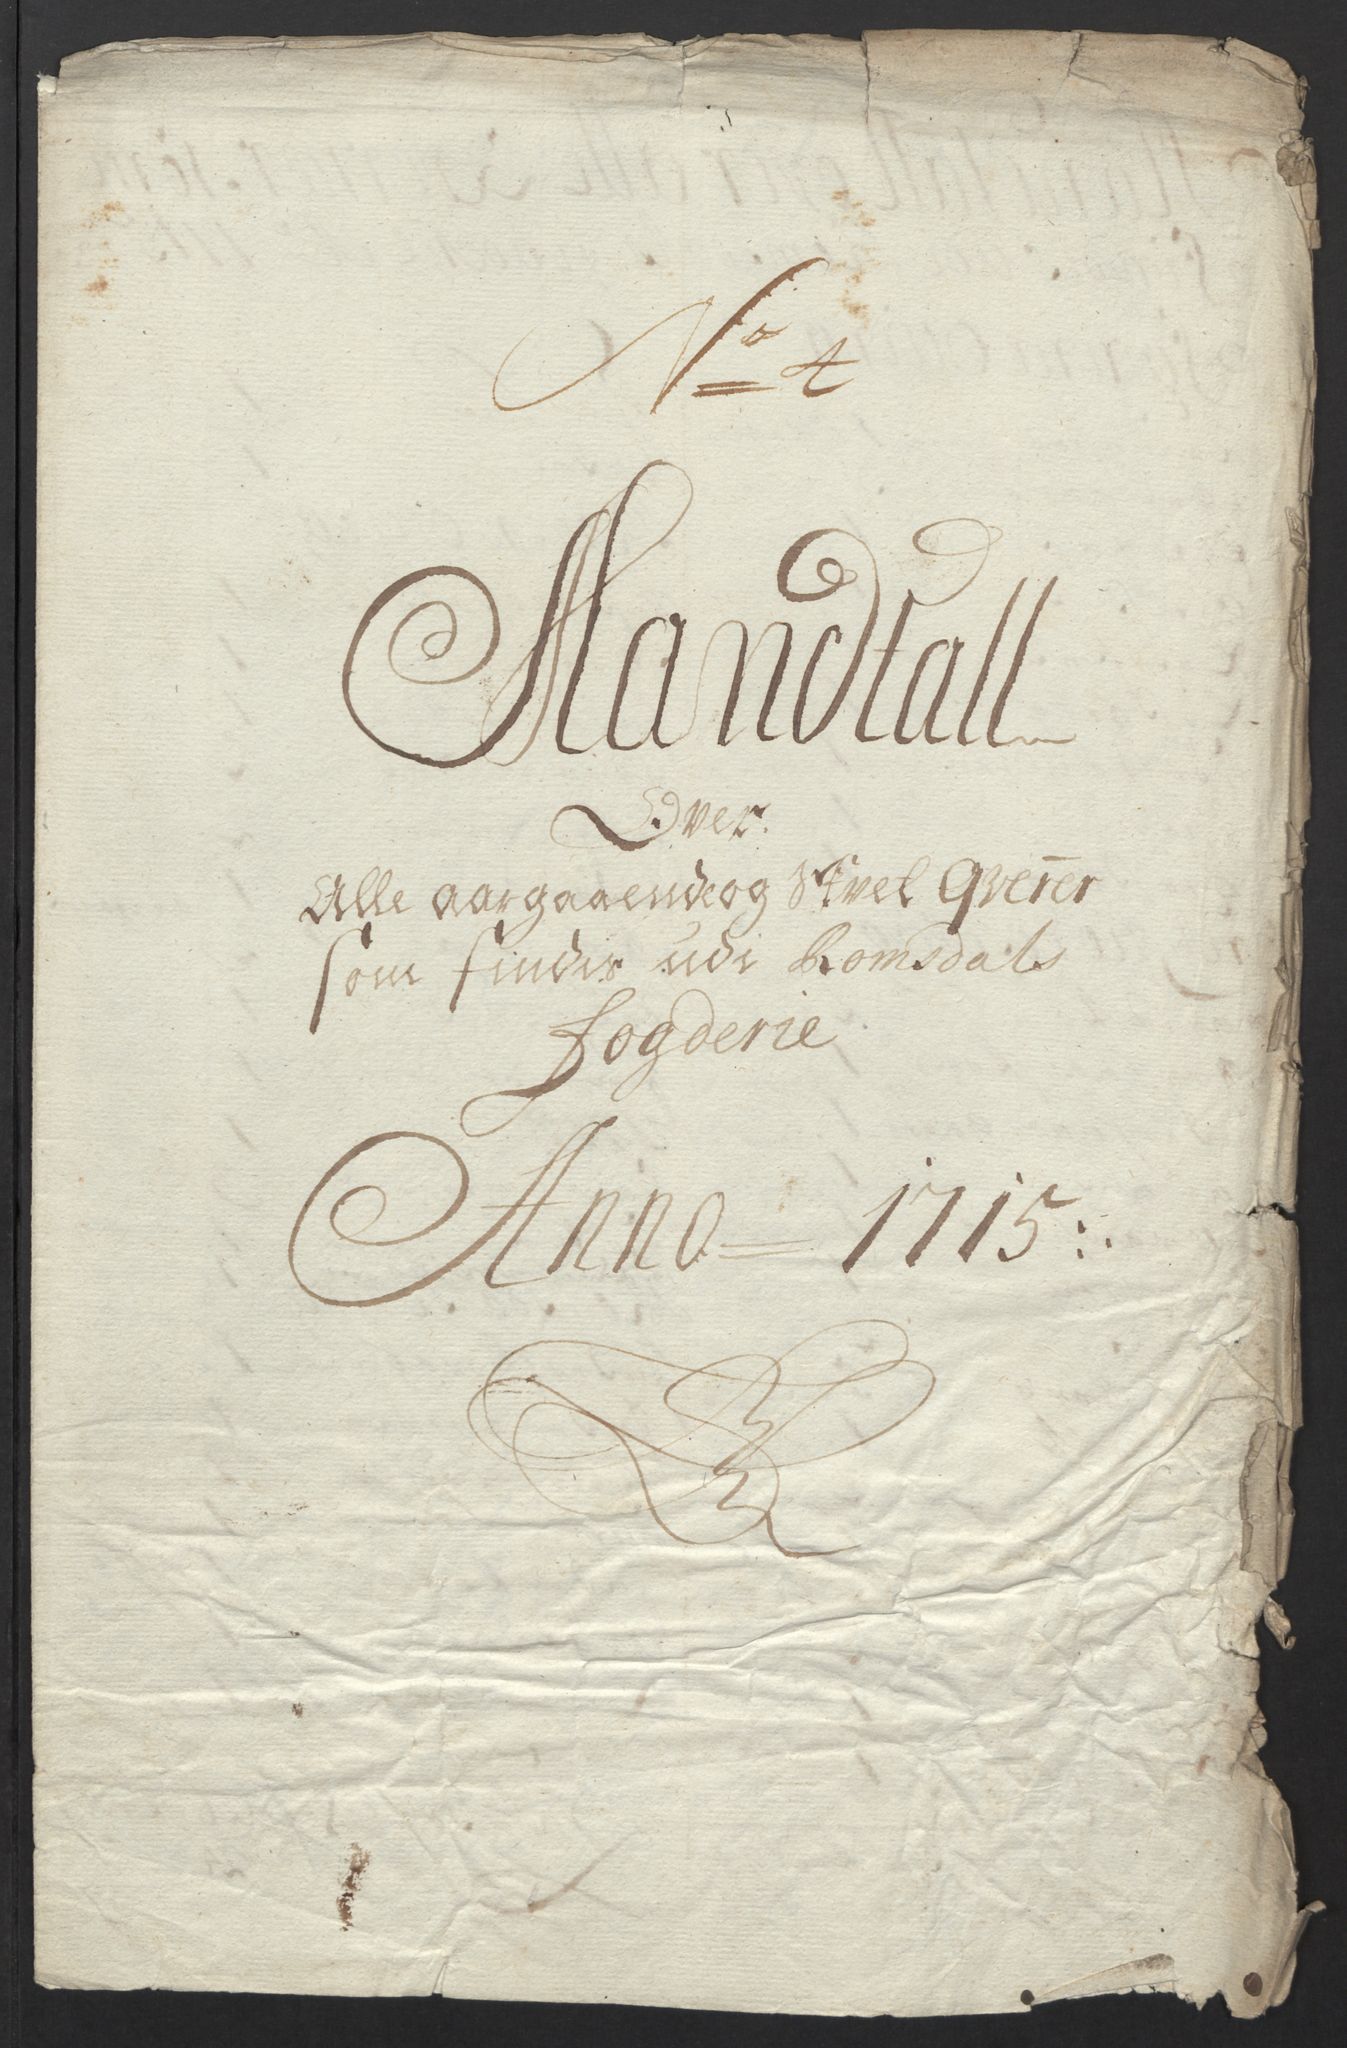 No 4
Mandtall
Over
Alle aargaaende og Skvel Qverner
som findis udi Romsdals
fogderie
Anno 1715